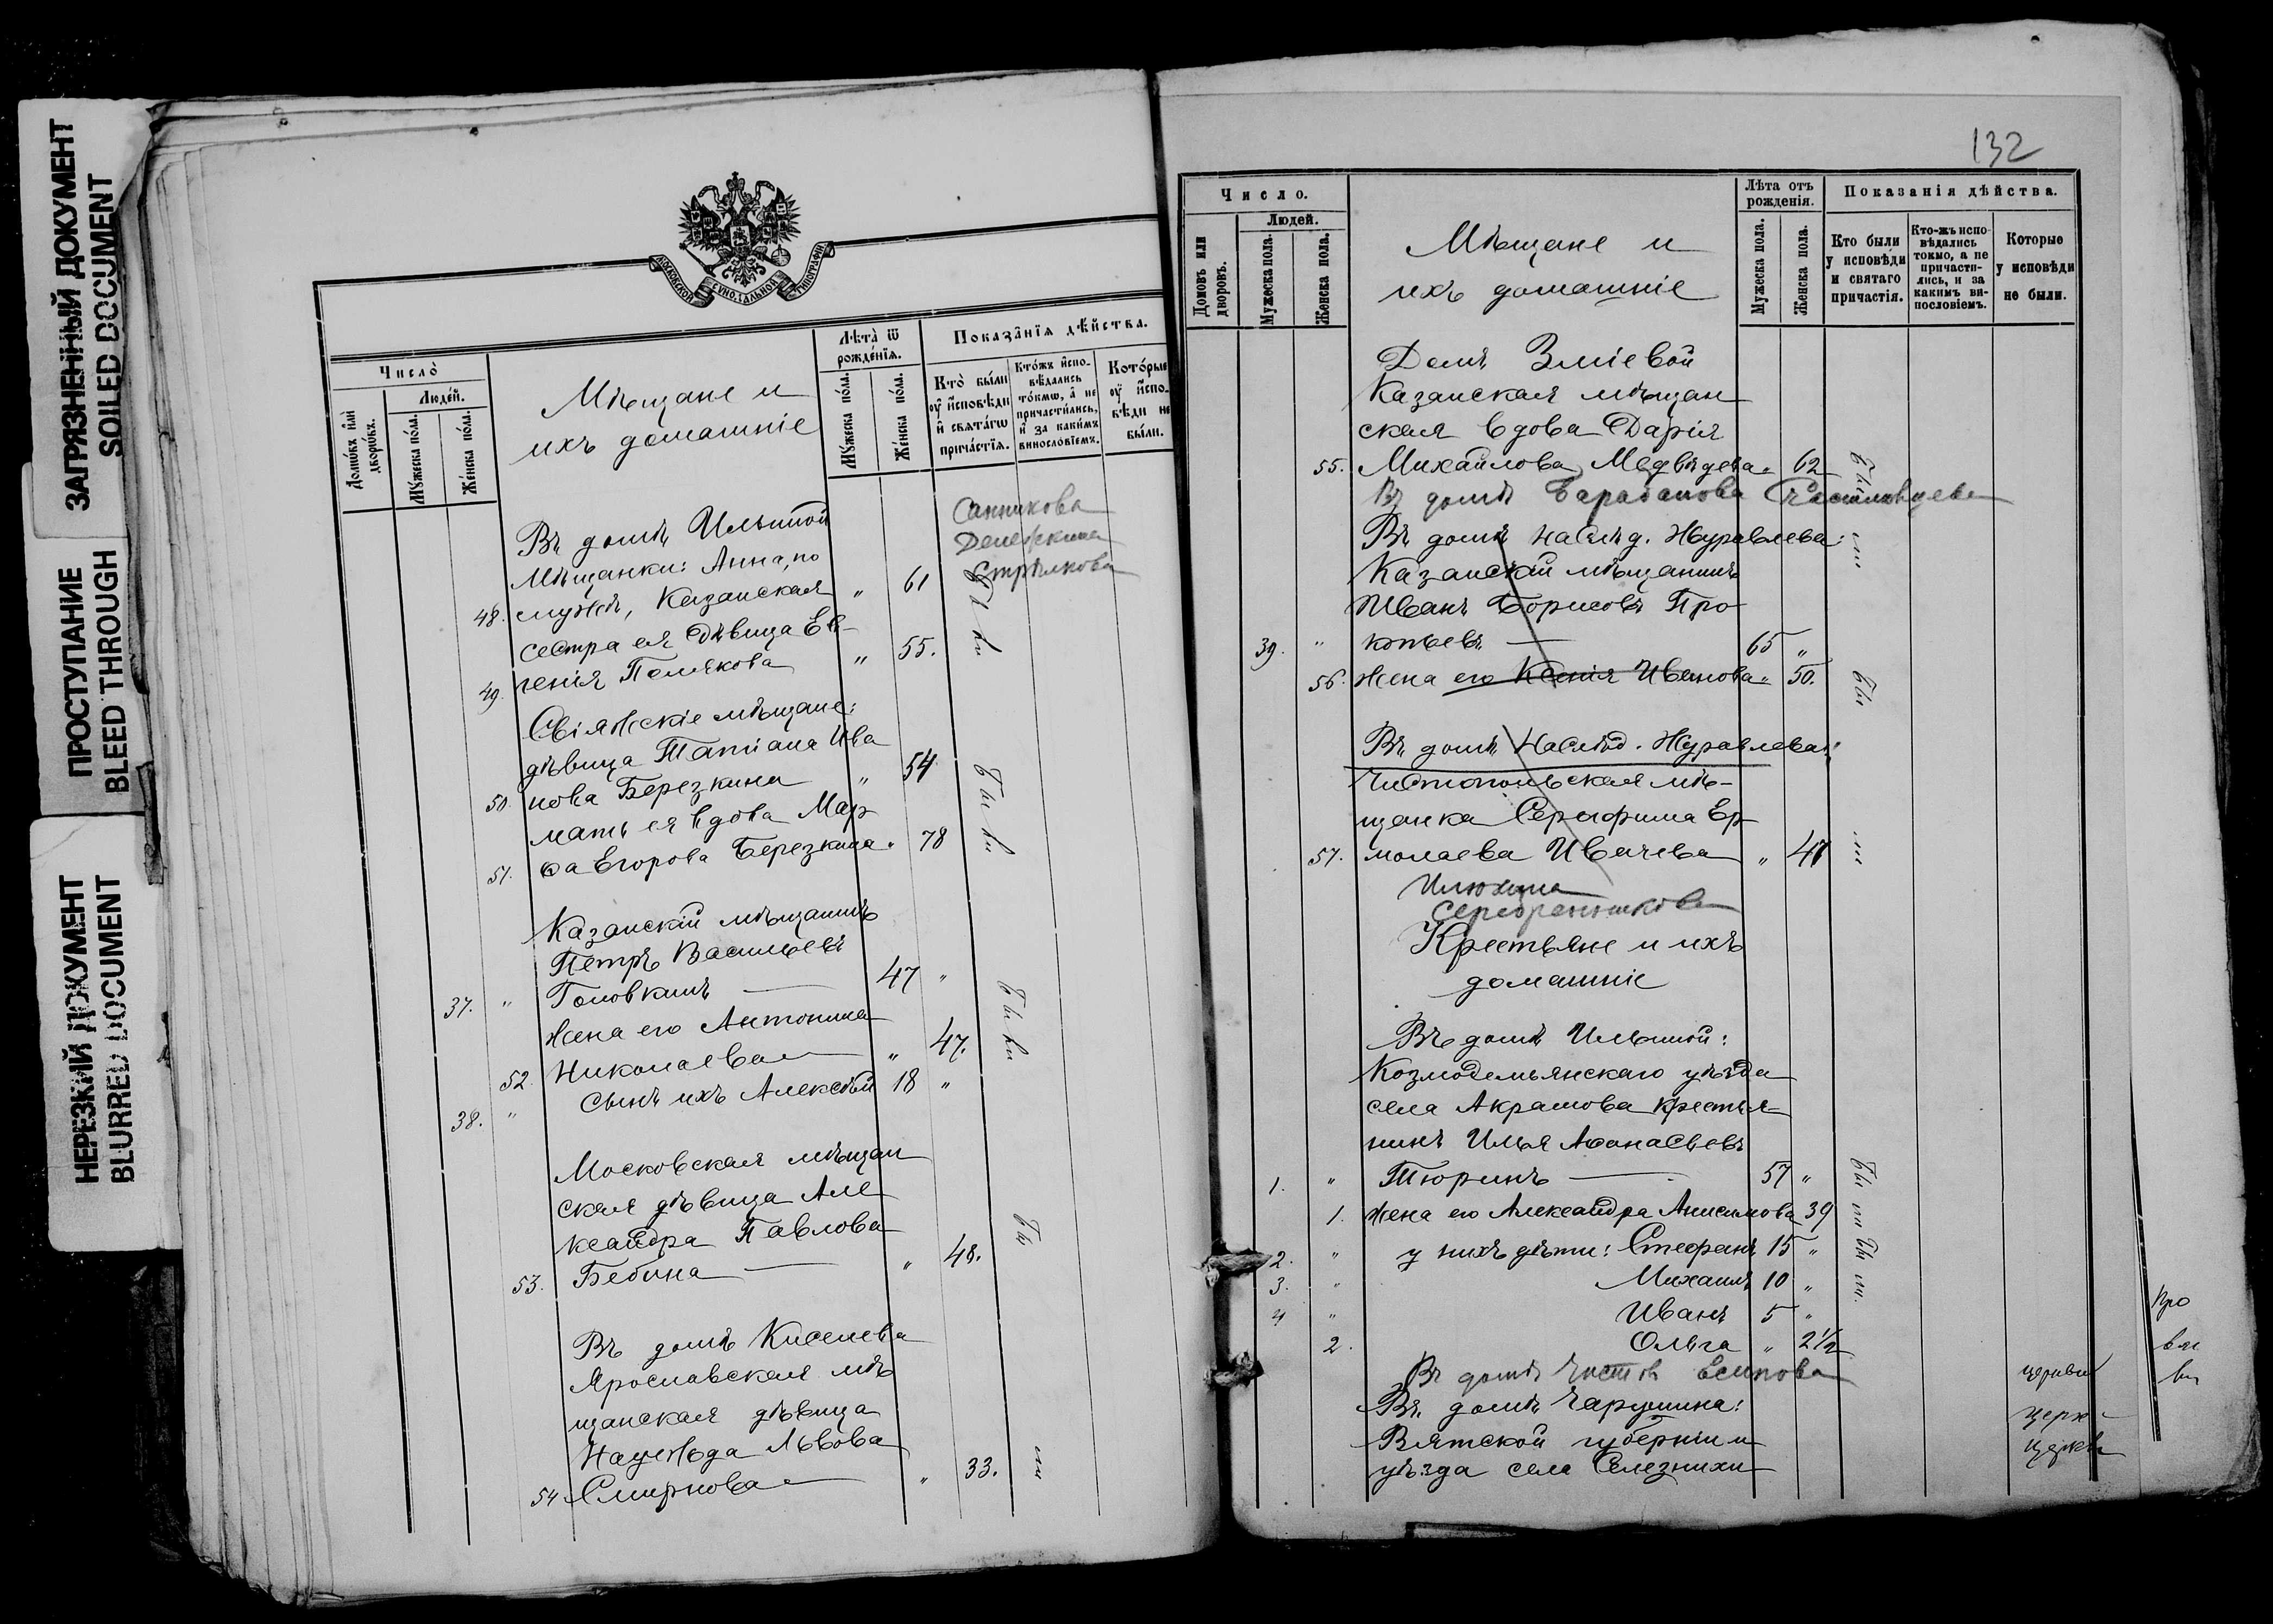 ЗАГРЯЗНЕННЫЙ ДОКУМЕНТ
SOILED DOCUMENT
ПРОСТУПАНИЕ
BLEED THROUGH
НЕРЕЗКИЙ ДОКУМЕНТ
BLURRED DOCUMENT
МОСКОВСКОЙ СѴНОДАЛЬНОЙ ТИПОГРАФІИ
Число̀
Людей.
Домѡвъ и҆лѝ дворѡвъ.
Мꙋжеска по́ла.
Же́нска по́ла.
Мѣщане и
ихъ домашніе
Лѣта̀ ѿ рожде́нїѧ.
Мꙋжеска по́ла.
Же́нска по́ла.
Показа̑нїѧ дѣ́йства.
Кто̀ бы́ли оу҆ и҆сповѣди и҆ свѧта́гѡ прича́стїѧ.
Кто́жъ и҆спо-вѣдались то́кмѡ, а҆ не причасти́лись, и҆ за каки́мъ винословїемъ.
Кото́рые оу҆ и҆спо-вѣди не бы́ли.
Въ домѣ Ильиной
Мѣщанки: Анна, по
48. мужѣ, Казанская " 61
сестра ея дѣвица Ев-
49. генія Полякова " 55.
Санникова
Денежкина
Стрѣлкова
Свіяжскіе мѣщане:
дѣвица Татіана Ива
50. нова Березкина " 54
мать ея вдова Мар
51. ѳа Егорова Березкина " 78
Казанскій мѣщанинъ
Петръ Васильевъ
37. " Головкинъ — 47 "
Жена его Антонина
52. Николаева — " 47.
38. " сынъ ихъ Алексѣй 18 "
Московская мѣщан
ская дѣвица Але
ксандра Павлова
53. Бебина — " 48.
Въ домѣ Киселева
Ярославская мѣ
щанская дѣвица
Надежда Львова
54 Смирнова — " 33.
132
Число.
Людей.
Домовъ или дворовъ.
Мужеска пола.
Женска пола.
Мѣщане и
ихъ домашніе
Лѣта отъ рожденія.
Мужеска пола.
Женска пола.
Показанія дѣйства.
Кто были у исповѣди и святаго причастія.
Кто-жъ испо-вѣдались токмо, а не причасти-лись, и за какимъ ви-нословіемъ.
Которые у исповѣди не были.
Домъ Зміевой
Казанская мѣщан
ская вдова Дарія
55. Михайлова Медвѣдева " 62
Въ домѣ Барабанова
Въ домѣ наслѣд. Журавлева:
Казанскій мѣщанинъ
Иванъ Борисовъ Про
39. " копьевъ — 65 "
56. Жена его Ксенія Иванова " 50.
Въ домѣ Наслѣд. Журавлева:
Чистопольская мѣ-
щанка Серафима Ер
57. молаева Ивачева " 47
Илюхина
Серебренникова
Крестьяне и ихъ
домашніе
Въ домѣ Ильиной:
Козмодемьянскаго уѣзда
села Акрамова крестья-
нинъ Илья Аѳанасьевъ
1. " Тюринъ — 57 "
1. Жена его Александра Анисимова 39
2. " у нихъ дѣти: Стефанъ 15 "
3. " Михаилъ 10 "
4 " Иванъ 5 "
2. Ольга " 2½
Въ домѣ Есипова
Въ домѣ Чарушина:
Вятской губерніи и
уѣзда села Селезнихи